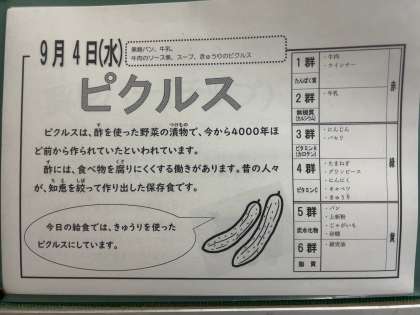 9月 4日(水)
黒糖パン、牛乳、
牛肉のソース煮、スープ、きゅうりのピクルス
ピクルス
ピクルスは、酢を使った野菜の漬物で、今から4000年ほ
ど前から作られていたといわれています。
酢には、食べ物を腐りにくくする働きがあります。昔の人々
が、知恵を絞って作り出した保存食です。
今日の給食では、きゅうりを使った
ピクルスにしています。
1群
たんぱく質
・牛肉
・ウインナー
2群
無機質
(カルシウム)
・牛乳
赤
3群
ビタミンA
(カロテン)
・にんじん
・パセリ
4群
ビタミンC
・たまねぎ
・グリンピース
・にんにく
・キャベツ
・きゅうり
緑
5群
炭水化物
・パン
・上新粉
・じゃがいも
・砂糖
6群
脂質
黄